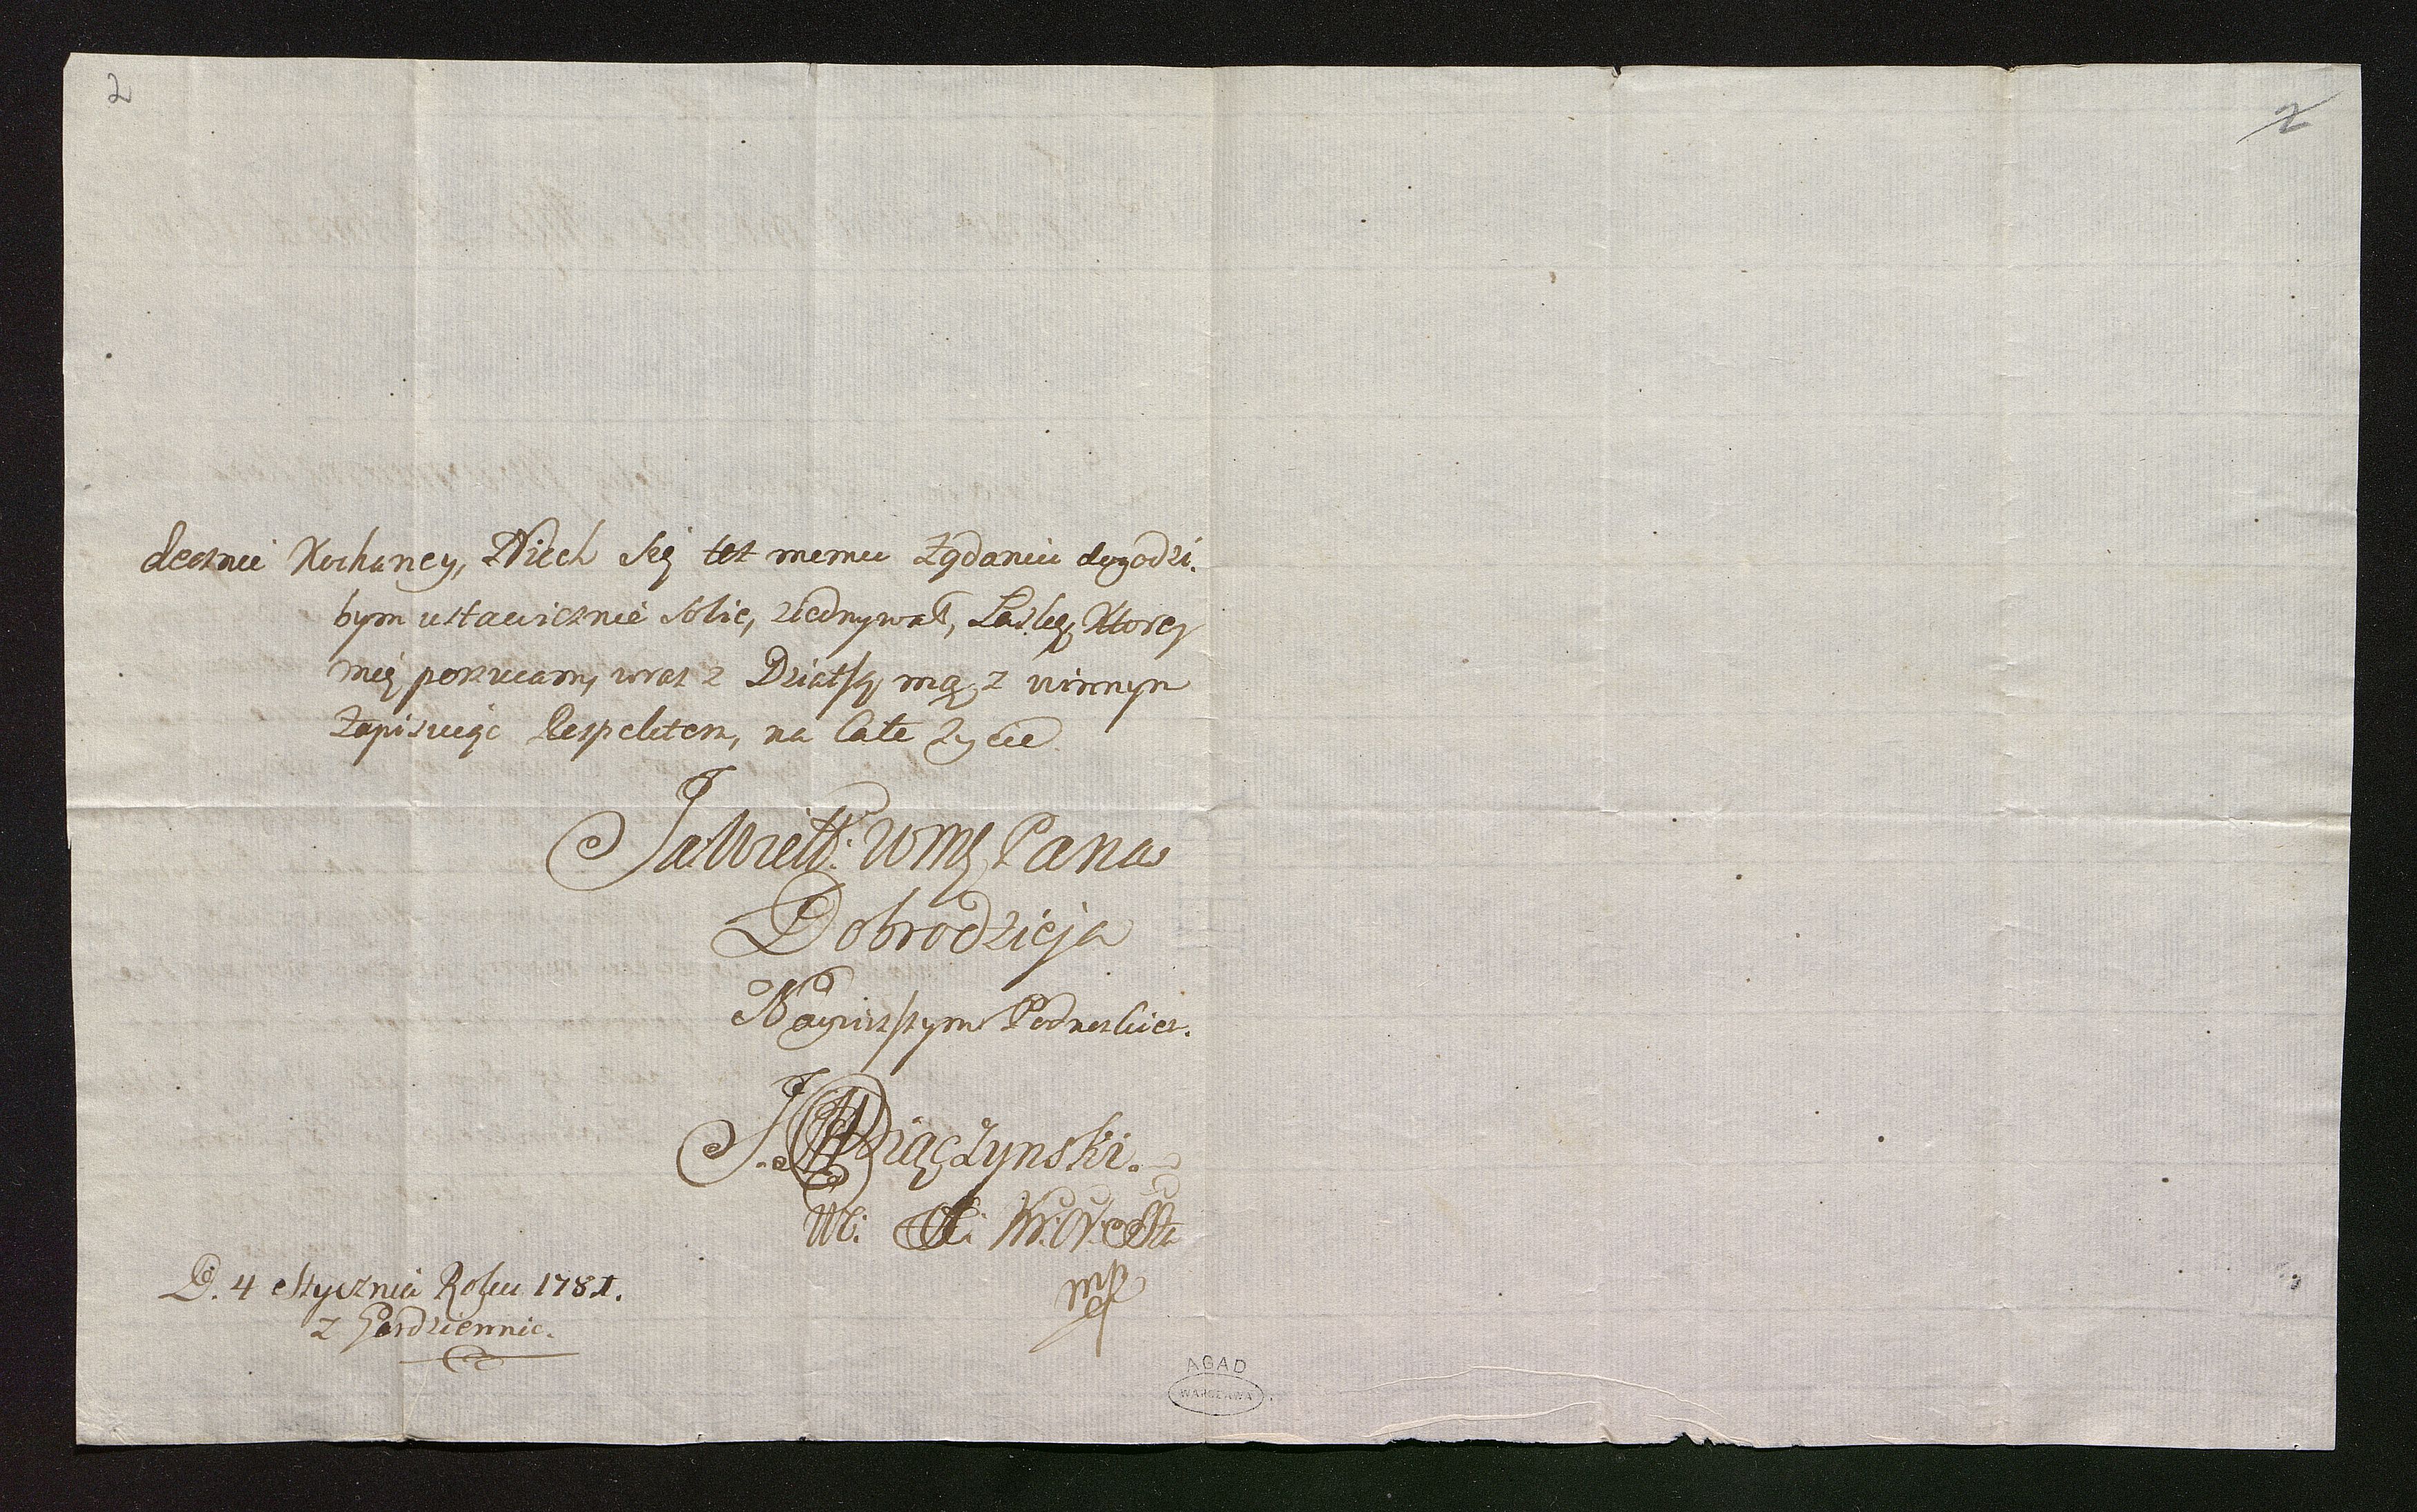 2
2
decznie Kochaney, Niech się też memu żądaniu dogodzi.
bym ustawicznie sobie, ziednywał, Łaskę, Ktorey
mię porucam, wraz z Dziatką mą, z winnym
zapisuiąc Respektem, na Całe Życie
JaWielł: WMę Pana
Dobrodzieja
Nayniższym Podnoszkiem.
J. Miączynski.
D. 4 Stycznia Roku 1781.
z Pardziennic.
mp
AGAD
WARSZAWA